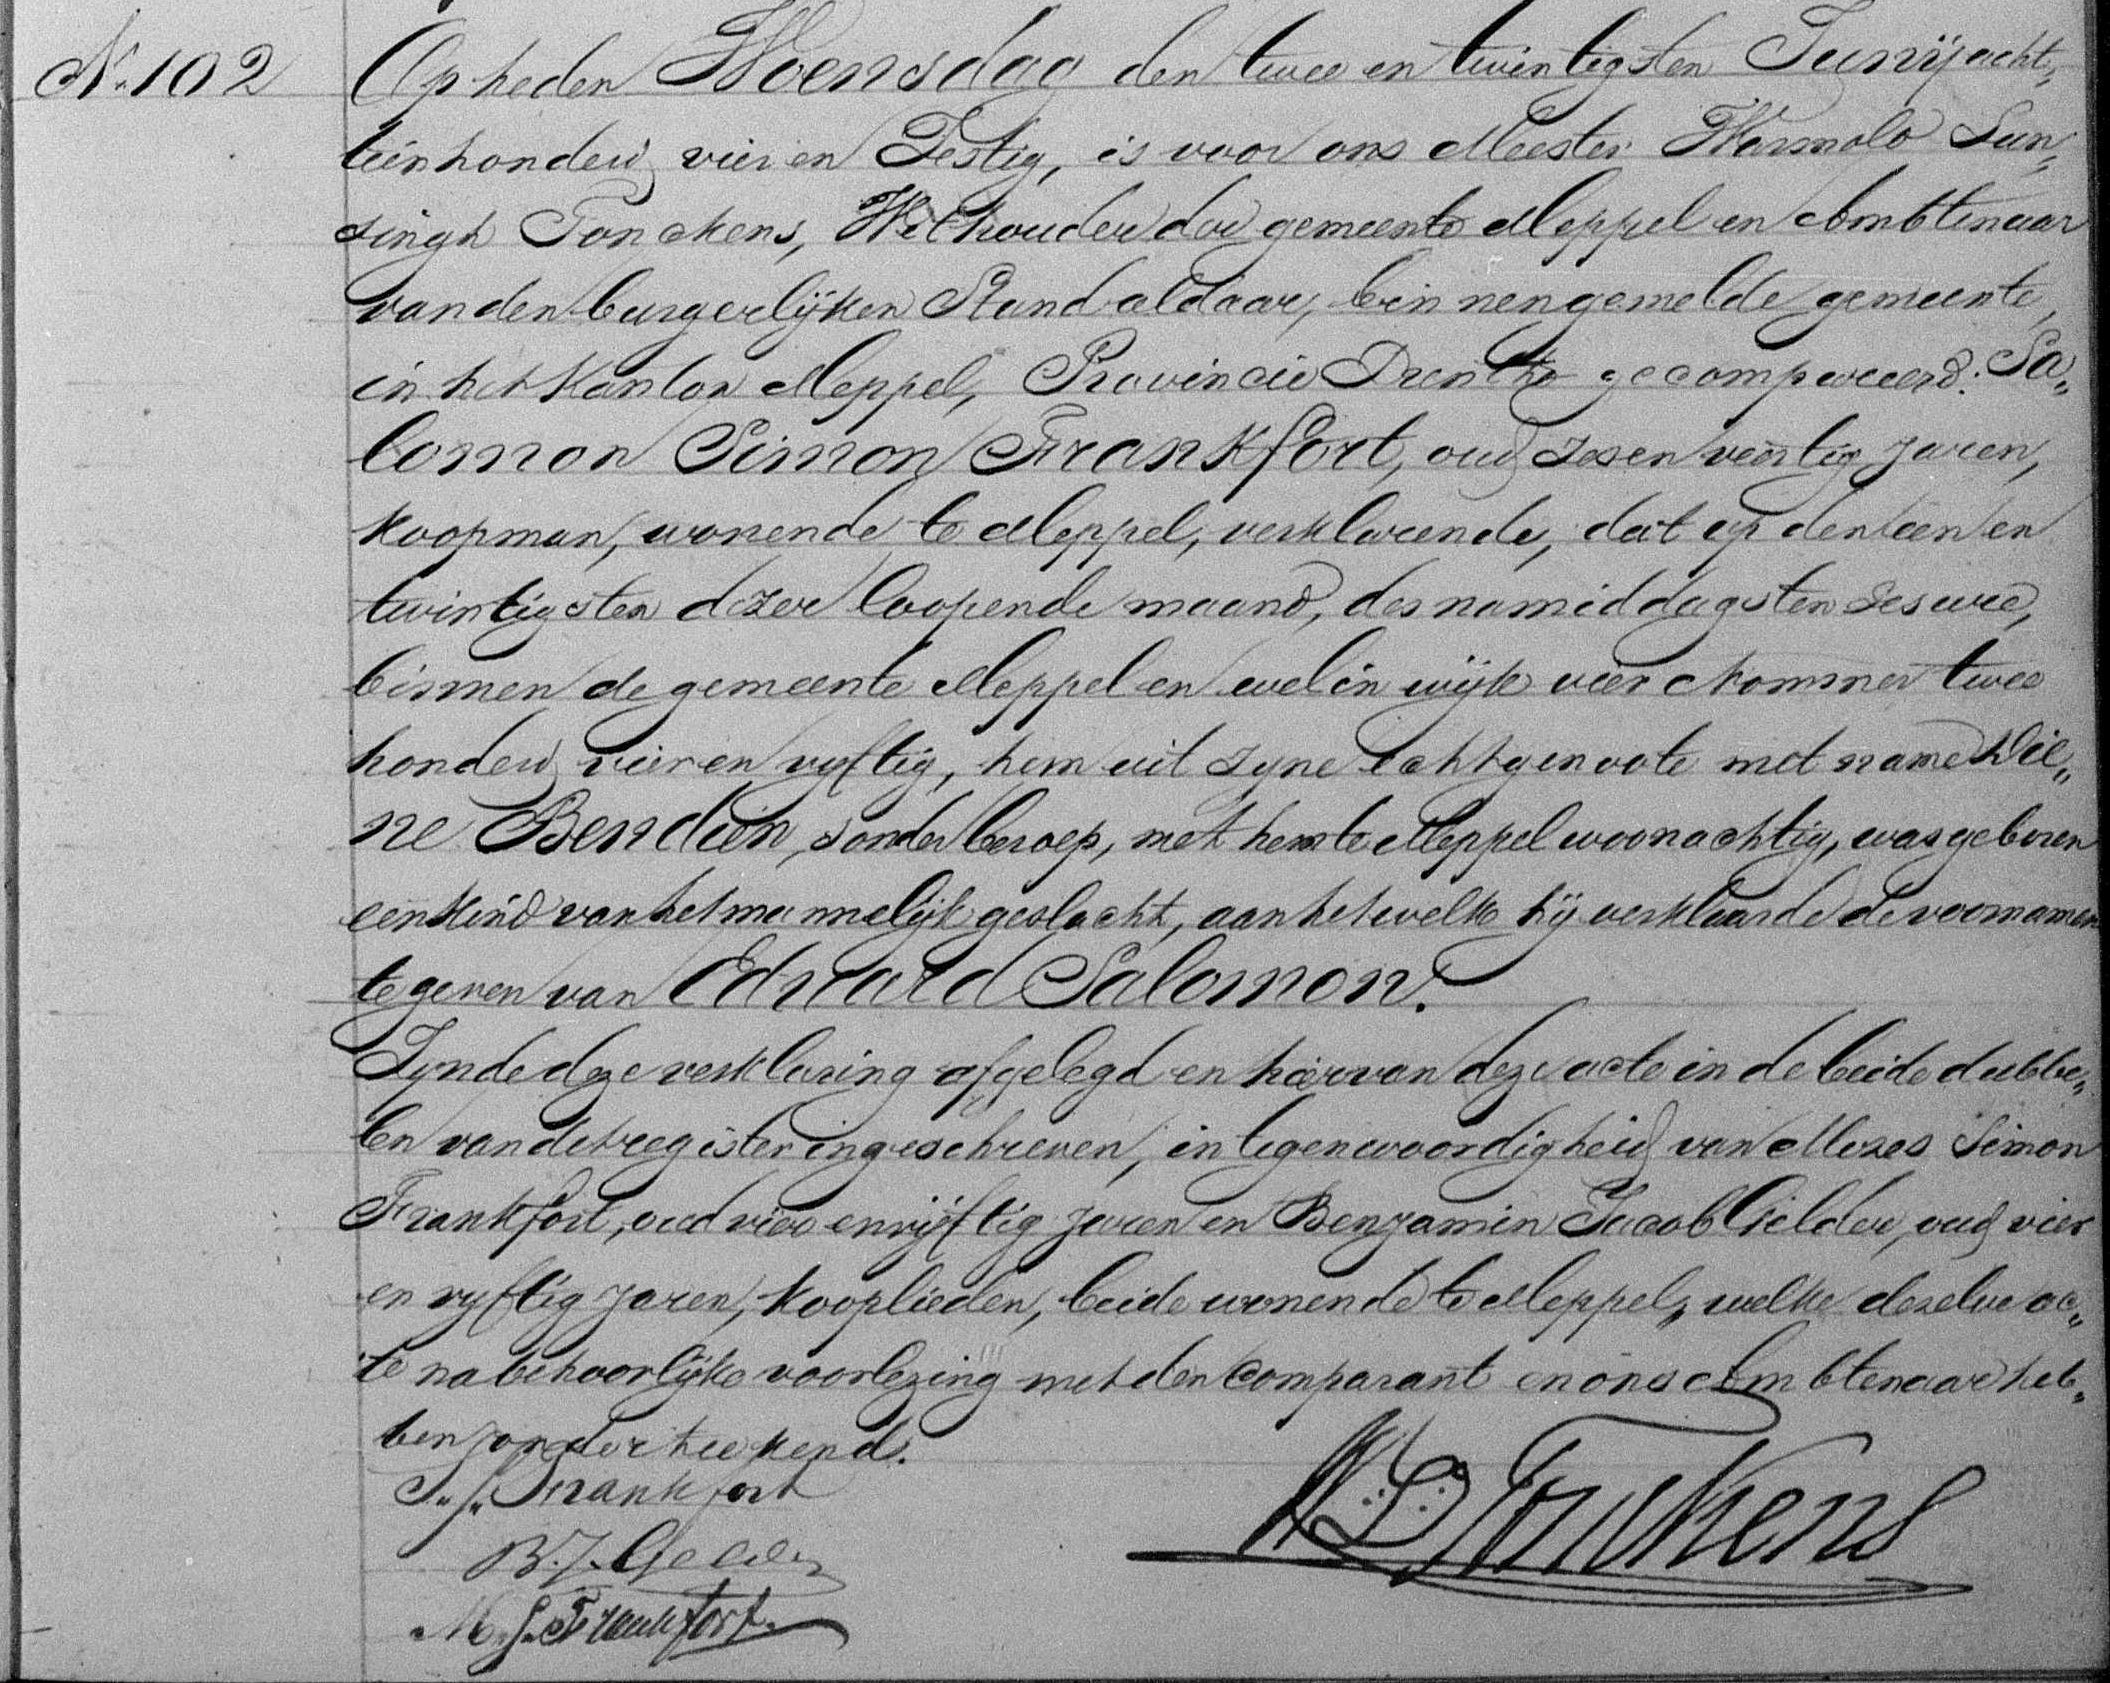 No. 102
Op heden Woensdag den twee en twintigsten Junij acht„
tienhonderd vier en Zestig, is voor ons Meester Warmolo Lun„
singh Tonckens, Wethouder der gemeente Meppel en Ambtenaar
van den burgerlijken Stand aldaar, binnen gemelde gemeente,
in het Kanton Meppel, Provincie Drenthe gecompareerd: Sa„
lomon Simon Frankfort, oud zes en veertig jaren,
koopman, wonende te Meppel, verklarende, dat op den een en
twintigsten dezer loopende maand, des namiddags ten zes ure,
binnen de gemeente Meppel en wel in wijk vier Nommer twee
honderd vier en vyftig, hem uit zyne echtgenoote met name Die„
ne Bendien, zonder beroep, met hem te Meppel woonachtig, was geboren
een kind van het mannelijk geslacht, aan hetwelk hij verklaarde de voornamen
te geven van Eduard Salomon.
Zynde deze verklaring afgelegd en hiervan deze acte in de beide dubbe„
len van det register ingeschreven, in tegenwoordigheid van Mozes Simon
Frankfort, oud vier en vijftig jaren en Benjamin Jacob Gelder, oud vier
en vyftig jaren, kooplieden, beide wonende te Meppel, welke dezelve ac„
te na behoorlijke voorlezing met den Comparant en ons Ambtenaar heb„
ben onderteekend.
S. S. Frankfort
B. J. Gelder
M. S. Frankfort.
W. L. Tonckens